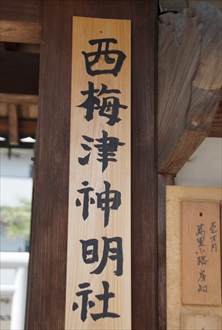 西梅津神明社